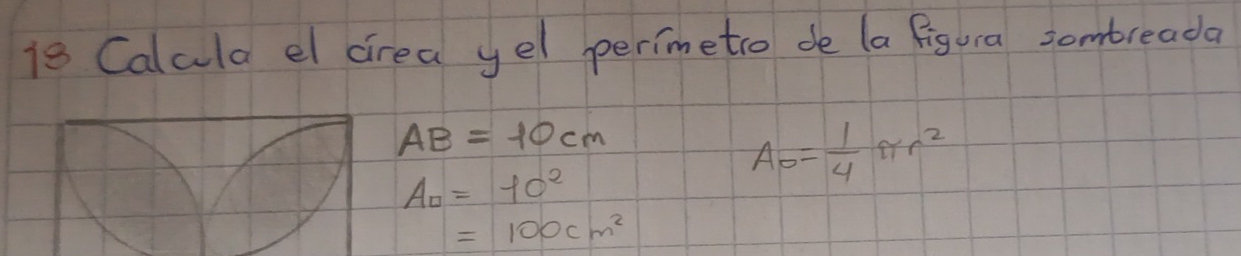 18 Calcula el área y el perímetro de la figura sombreada
AB = 10cm
A□ = 10²
= 100cm²
A○ = 1/4 πr²